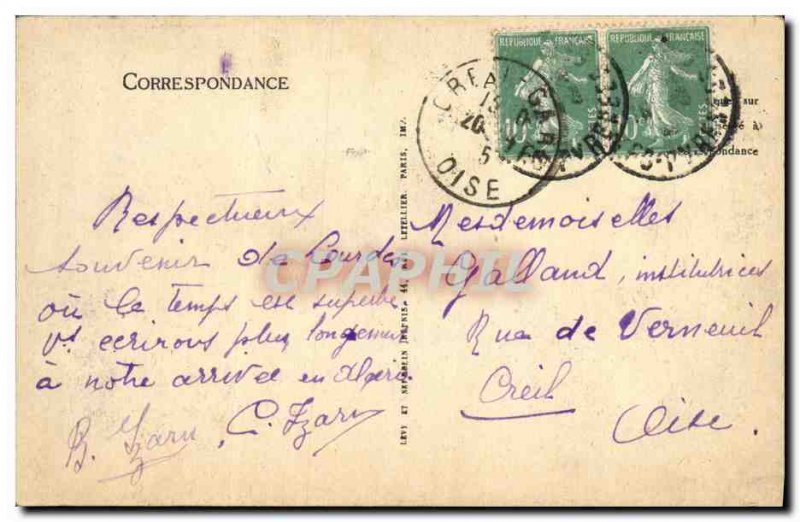 CORRESPONDANCE
REPUBLIQUE FRANÇAISE
REPUBLIQUE FRANÇAISE
10
CREIL-GARE
OISE
sur
à
Respectueux
souvenir de Lourdes
où le temps est superbe
Vs ecrirous plus longement
à notre arrivée en Algérie
B. Izarn, C. Izarn
LÉVY ET NEURDEIN RÉUNIS, 44, RUE LETELLIER, PARIS, IMP.
Mesdemoiselles
Galland, institutrices
Rue de Verneuil
Creil
Oise.
CPAPHIL